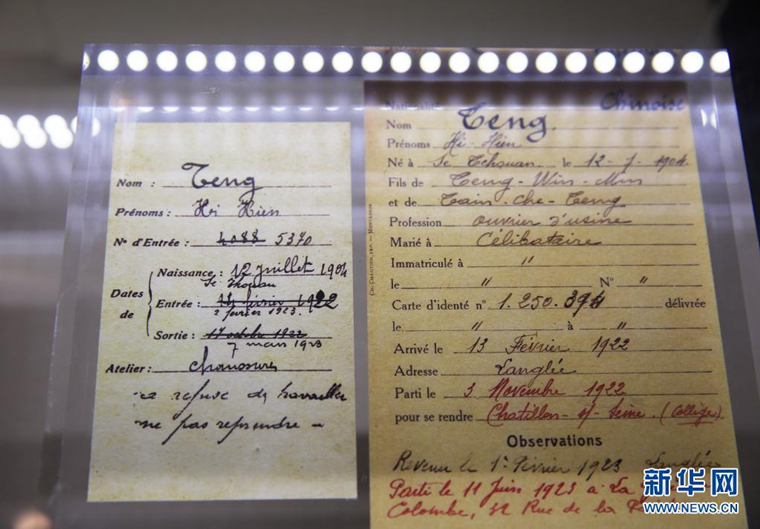 Nom : Teng
Prénoms: Hi Hien
N° d'Entrée: 4088 5370
Dates de
Naissance: 12 juillet 1904
Se Tchouan
Entrée: 14 février 1922
2 février 1923.
Sortie: 17 octobre 1922
7 mars 1923
Atelier: chaussures
a refusé de travailler
ne pas reprendre –
Chinoise
Nom Teng.
Prénoms Hi-Hien
Né à Se Tchouan le 12-7-1904
Fils de Teng-Win-Min
et de Tain-Che-Teng
Profession ouvrier d'usine
Marié à Célibataire
Immatriculé à "
le " N° "
Carte d'identé n° 1.250.394 délivrée
le " à "
Arrivé le 13 Février 1922
Adresse Langlée
Parti le 3 Novembre 1922
pour se rendre Chatillon-s/-Seine (Collège)
Observations
Revenu le 1er Février 1923 Langlée
Parti le 11 Juin 1923 à La
Colombe, 39 Rue de la
新华网
WWW.NEWS.CN
新华网
WWW.NEWS.CN